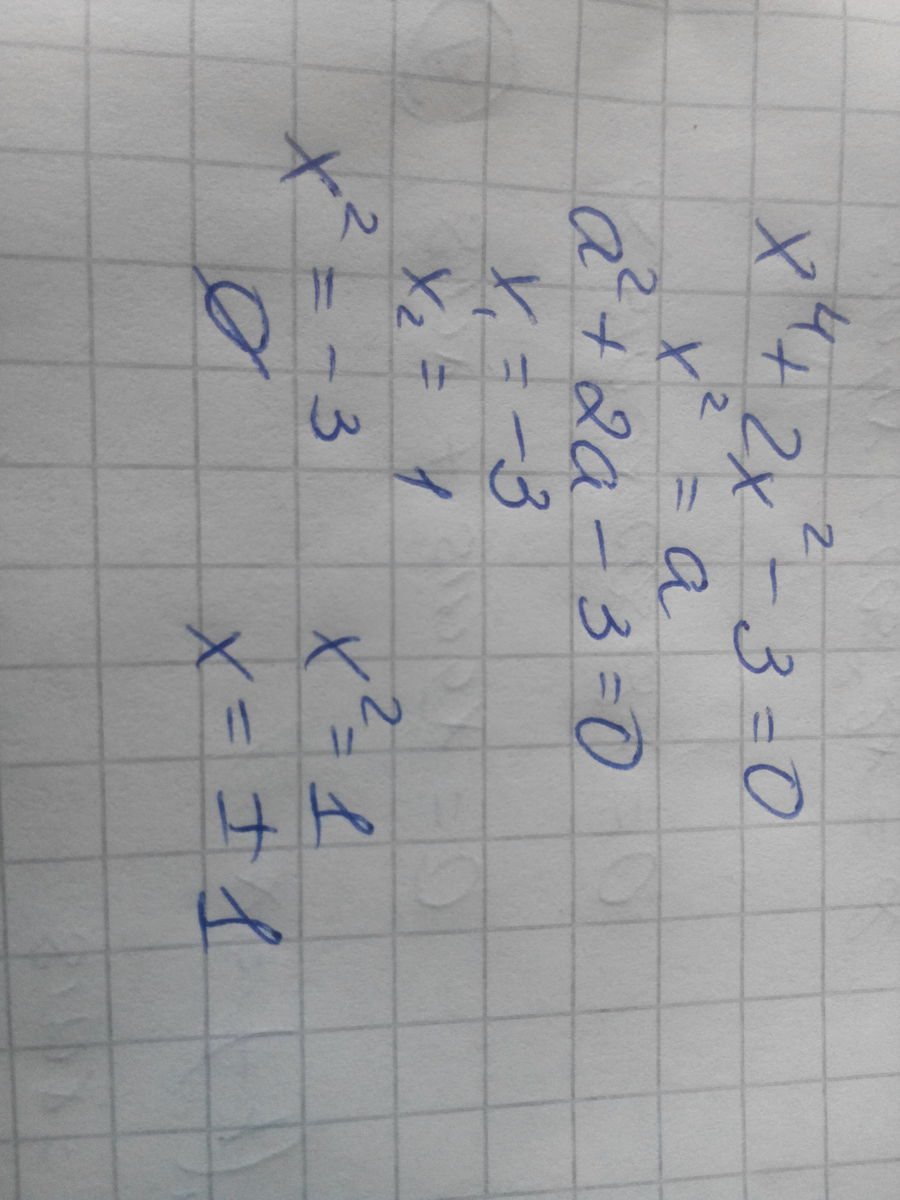 x⁴ + 2x² - 3 = 0
x² = a
a² + 2a - 3 = 0
x₁ = -3
x₂ = 1
x² = -3    x² = 1
∅    x = ±1